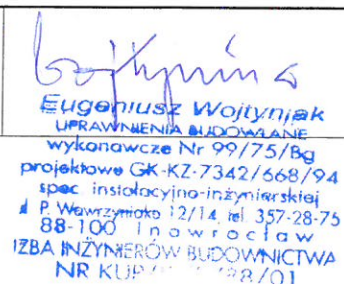 Eugeniusz Wojtyniak
UPRAWNIENIA BUDOWLANE
wykonawcze Nr 99/75/Bg
projektowe GK-KZ-7342/668/94
spec instalacyjno-inżynierskiej
P. Wawrzyniaka 12/14, tel. 357-28-75
88-100 Inowrocław
IZBA INŻYNIERÓW BUDOWNICTWA
NR KUP/ /01